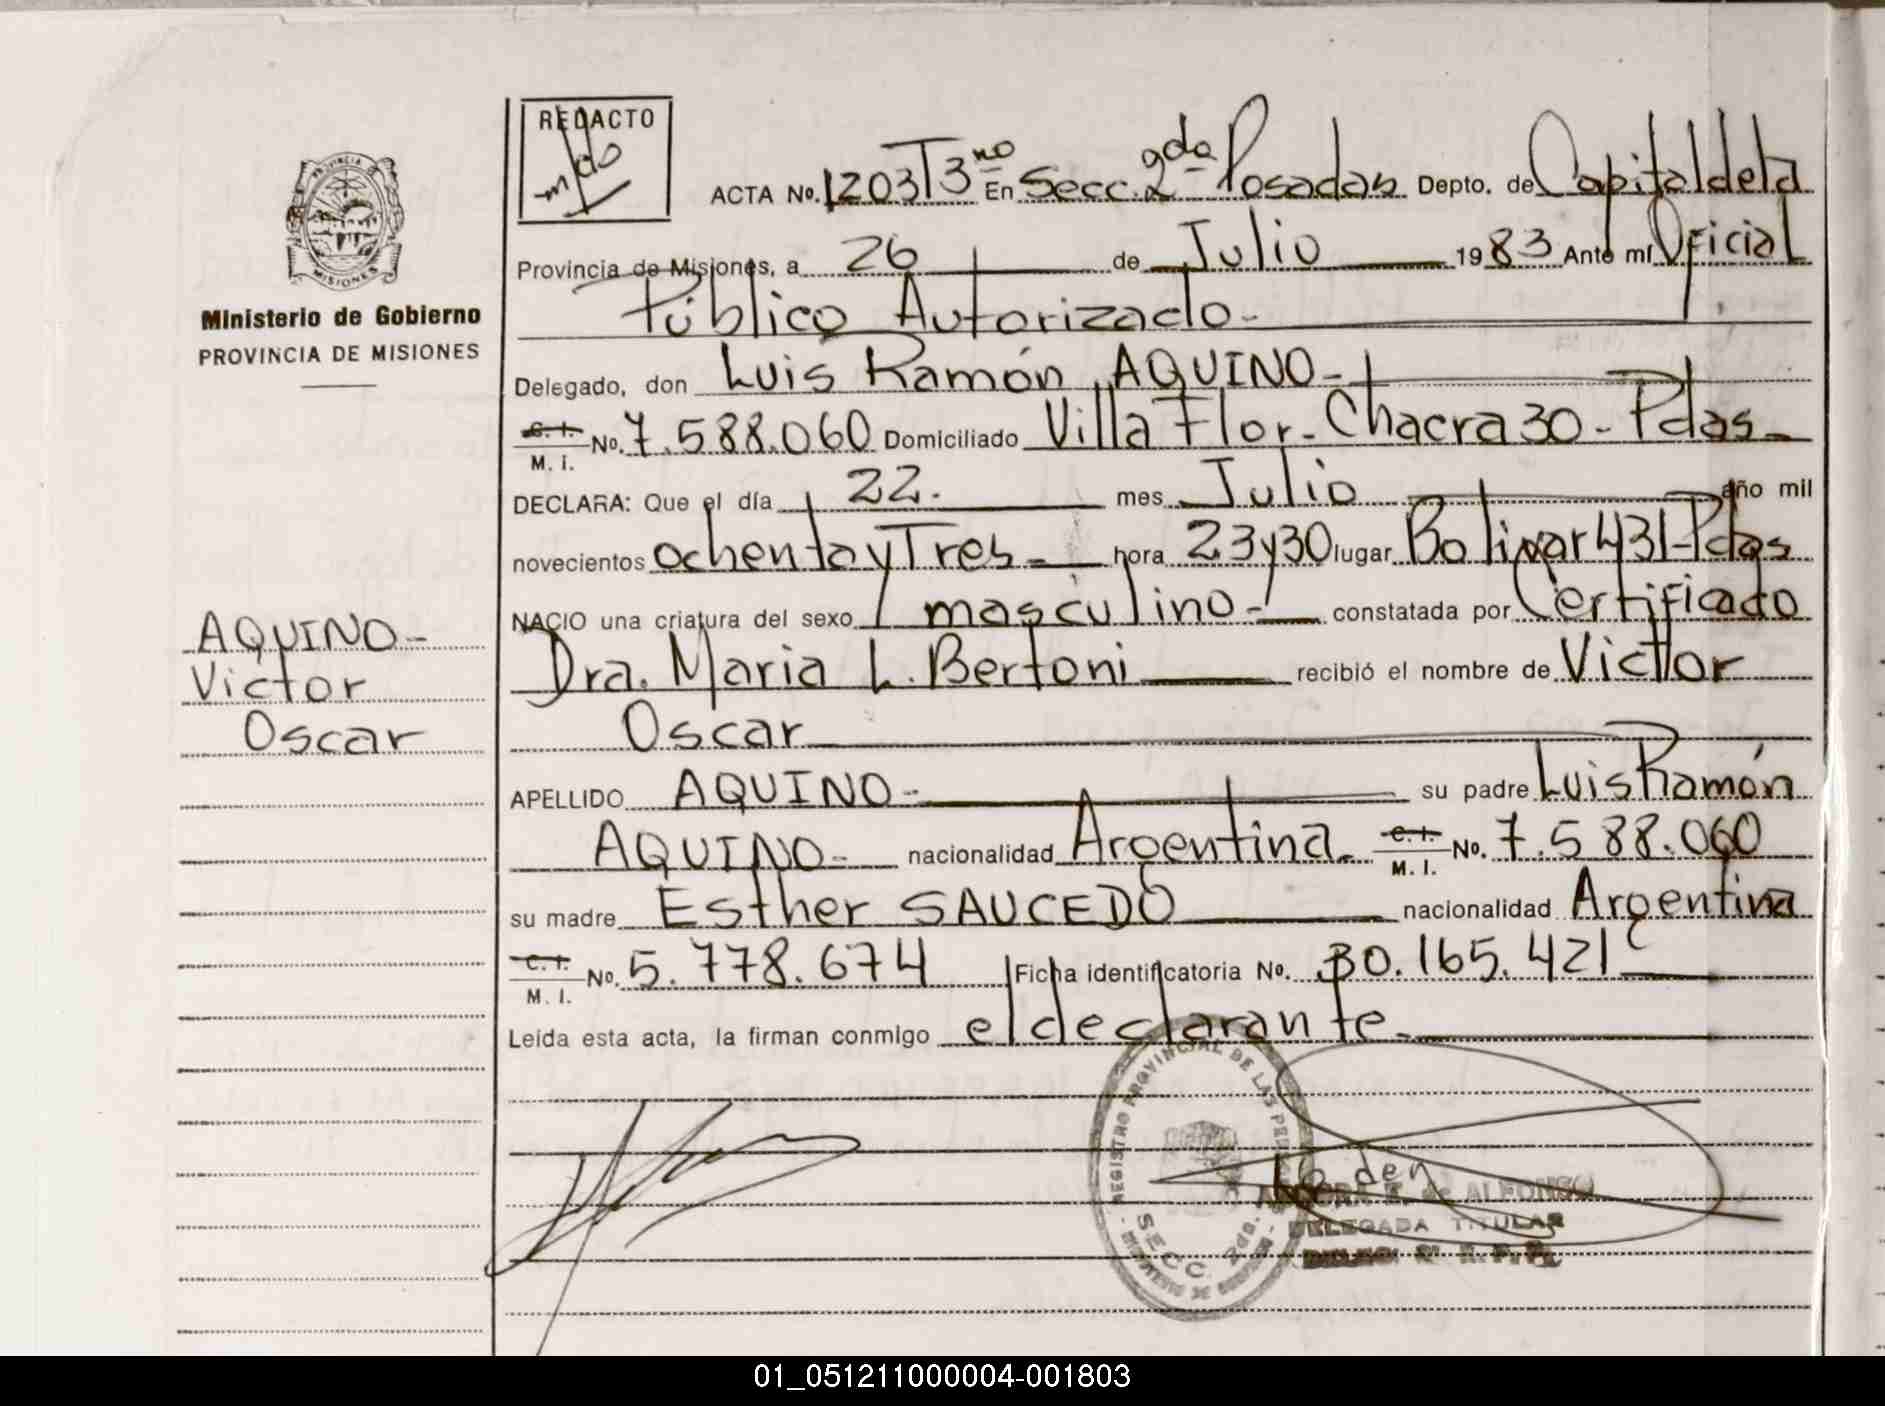 REDACTO
ACTA No. 1203 T 3no En Secc. 2da Posadas Depto. de Capital de la
Provincia de Misiones, a 26 de Julio 1983 Ante mí Oficial
Público Autorizado-
PROVINCIA
MISIONES
Ministerio de Gobierno
PROVINCIA DE MISIONES
Delegado, don Luis Ramón AQUINO-
C. I. M. I. No. 7.588.060 Domiciliado Villa Flor- Chacra 30- Pdas-
DECLARA: Que el día 22. mes Julio año mil
novecientos ochenta y Tres- hora 23 y 30 lugar Bolivar 431-Pdas
NACIO una criatura del sexo masculino- constatada por Certificado
AQUINO-
Victor
Oscar
Dra. Maria L. Bertoni recibió el nombre de Victor
Oscar
APELLIDO AQUINO- su padre Luis Ramón
AQUINO- nacionalidad Argentina. C. I. M. I. No. 7.588.060
su madre Esther SAUCEDO nacionalidad Argentina
C. I. M. I. No. 5.778.674 Ficha identificatoria No. 30.165.421
Leida esta acta, la firman conmigo el declarante-
REGISTRO PROVINCIAL DE LAS
SECC. 2da.
ALFONSO
DELEGADA TITULAR
01_051211000004-001803